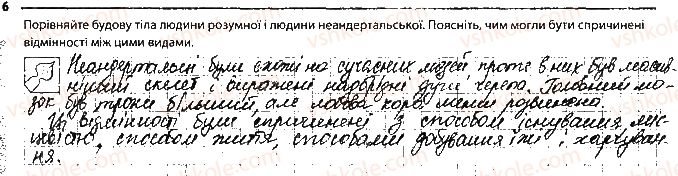 6
Порівняйте будову тіла людини розумної і людини неандертальської. Поясніть, чим могли бути спричинені
відмінності між цими видами.
Неандертальці були схожі на сучасних людей проте в них був масив-
ніший скелет і виражені надбрівні дуги черепа. Головний мо-
зок був трохи більший, але лобова кора менш розвинена.
Ці відмінності були спричинені з способом існування міс-
цевістю, способом життя, способами добування їжі і харчуван-
ня.